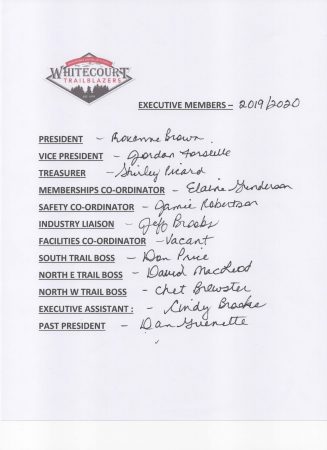 WHITECOURT
TRAILBLAZERS
EXECUTIVE MEMBERS – 2019/2020
PRESIDENT - Roxanne Brown
VICE PRESIDENT - Gordon Forseille
TREASURER - Shirley Picard
MEMBERSHIPS CO-ORDINATOR - Elaine Gunderson
SAFETY CO-ORDINATOR - Jamie Robertson
INDUSTRY LIAISON - Jeff Brooks
FACILITIES CO-ORDINATOR - Vacant
SOUTH TRAIL BOSS - Don Price
NORTH E TRAIL BOSS - David MacLeod
NORTH W TRAIL BOSS - Chet Brewster
EXECUTIVE ASSISTANT : - Cindy Brooks
PAST PRESIDENT - Dan Guenette